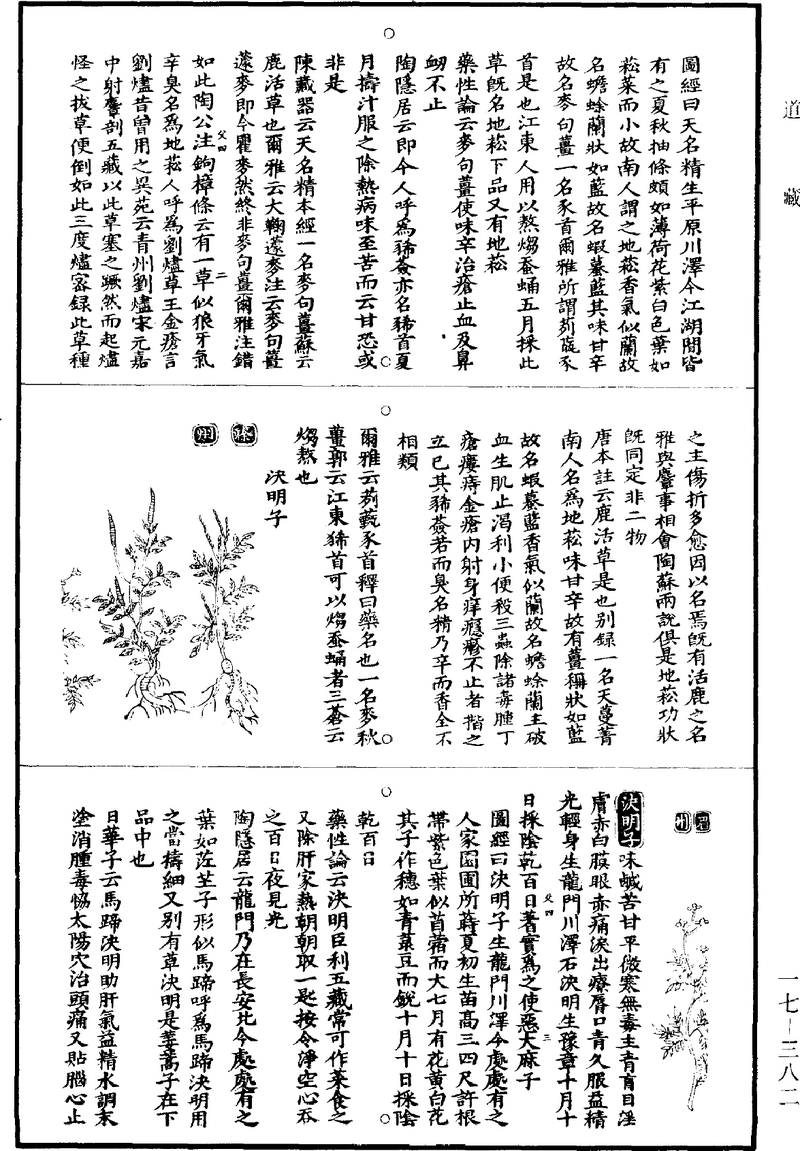 道藏
圖經曰天名精生平原川澤今江湖間皆
有之夏秋抽條頗如薄荷花紫白色葉如
菘菜而小故南人謂之地菘香氣似蘭故
名蟾蜍蘭狀如藍故名蝦蟇藍其味甘辛
故名麥句薑一名豕首爾雅所謂茢薽豕
首是也江東人用以熬煼蚕蛹五月採此
草既名地菘下品又有地菘
藥性論云麥句薑使味辛治瘡止血及鼻
衂不止
陶隱居云即今人呼為豨薟亦名豨首夏
月擣汁服之除熱病味至苦而云甘恐或
非是
陳藏器云天名精本經一名麥句薑蘇云
鹿活草也爾雅云大鞠蘧麥注云麥句薑
蘧麥即今瞿麥然終非麥句薑爾雅注錯
如此陶公注鉤樟條云有一草似狼牙氣
父四
二
辛臭名為地菘人呼為劉㷄草王金瘡言
劉㷄昔曾用之吳苑云青州劉㷄宋元嘉
中射麞剖五藏以此草塞之蹶然而起㷄
怪之拔草便倒如此三度㷄密録此草種
之主傷折多愈因以名焉既有活鹿之名
雅與麞事相會陶蘇兩説俱是地菘功狀
既同定非二物
唐本註云鹿活草是也别録一名天蔓菁
南人名為地菘味甘辛故有薑稱狀如藍
故名蝦蟇藍香氣似蘭故名蟾蜍蘭主破
血生肌止渴利小便殺三蟲除諸毒腫丁
瘡瘻痔金瘡内射身痒癮疹不止者揩之
立已其豨薟苦而臭名精乃辛而香全不
相類
爾雅云茢薽豕首釋曰藥名也一名麥秋
薑郭云江東豨首可以煼蚕蛹者三蒼云
煼熬也
決明子
滁州
眉州
決明子味鹹苦甘平微寒無毒主青盲目淫
膚赤白膜眼赤痛淚出療唇口青久服益精
光輕身生龍門川澤石決明生豫章十月十
日採陰乾百日著實為之使惡大麻子
父四
三
圖經曰決明子生龍門川澤今處處有之
人家園圃所蒔夏初生苗高三四尺許根
帶紫色葉似苜蓿而大七月有花黄白花
其子作穗如青菉豆而銳十月十日採陰
乾百日
藥性論云決明臣利五藏常可作菜食之
又除肝家熱朝朝取一匙挼令淨空心吞
之百日夜見光
陶隱居云龍門乃在長安北今處處有之
葉如茳芏子形似馬蹄呼為馬蹄決明用
之當擣細又别有草決明是萋蒿子在下
品中也
日華子云馬蹄決明助肝氣益精水調末
塗消腫毒熁太陽穴治頭痛又貼腦心止
一七-三八二